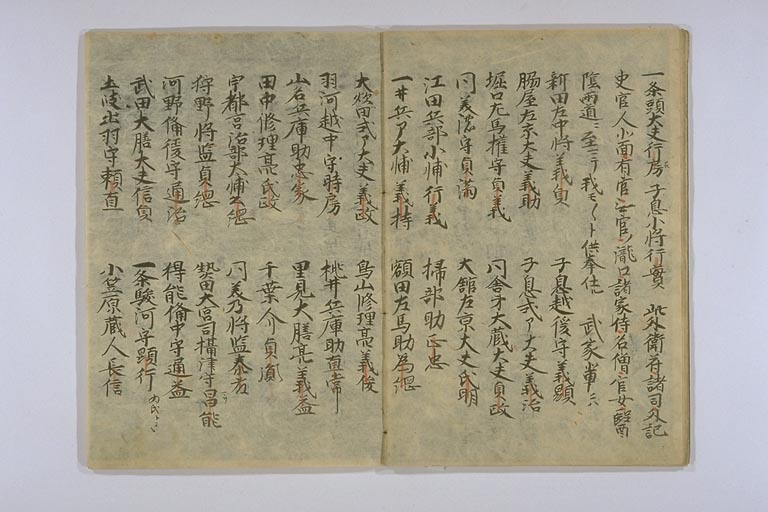 一条頭大夫行房 子息少将行實 此外衛府諸司外記
史官人 有官無官ノ瀧口諸家侍名僧官女醫
陰兩道ニ至ニテ我モ〱ト供奉仕 武家輩ニハ
新田左中将義貞 子息越後守義顯
脇屋右京大夫義助 子息式ア大夫義治
堀口左馬權守貞義 同舎弟大蔵大夫貞政
同美濃守貞満 大舘左京大夫氏明
江田兵部少輔行義 掃部助正忠
一井兵ア大輔義持 額田左馬助為綱
大炊田式ア大夫義政 鳥山修理亮義俊
羽河越中守時房 桃井兵庫助直常
山名兵庫助忠家 里見大膳亮義益
田中修理亮氏政 千葉介貞胤
宇都宮治部大輔公綱 同美乃将監泰友
狩野将監貞綱 熱田大宮司攝津守昌能
河野備後守通治 得能備中守通益
武田大膳大夫信貞 一条駿河守顕行
土岐出羽守頼直 小笠原蔵人長信